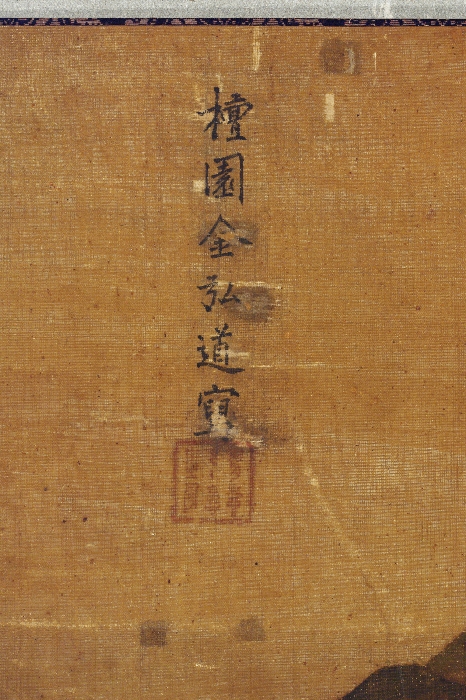 檀園金弘道寫